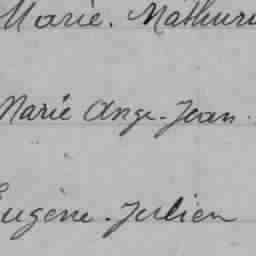 Marie. Mathuri
Marie Ange-Jean.
Eugène. Julien